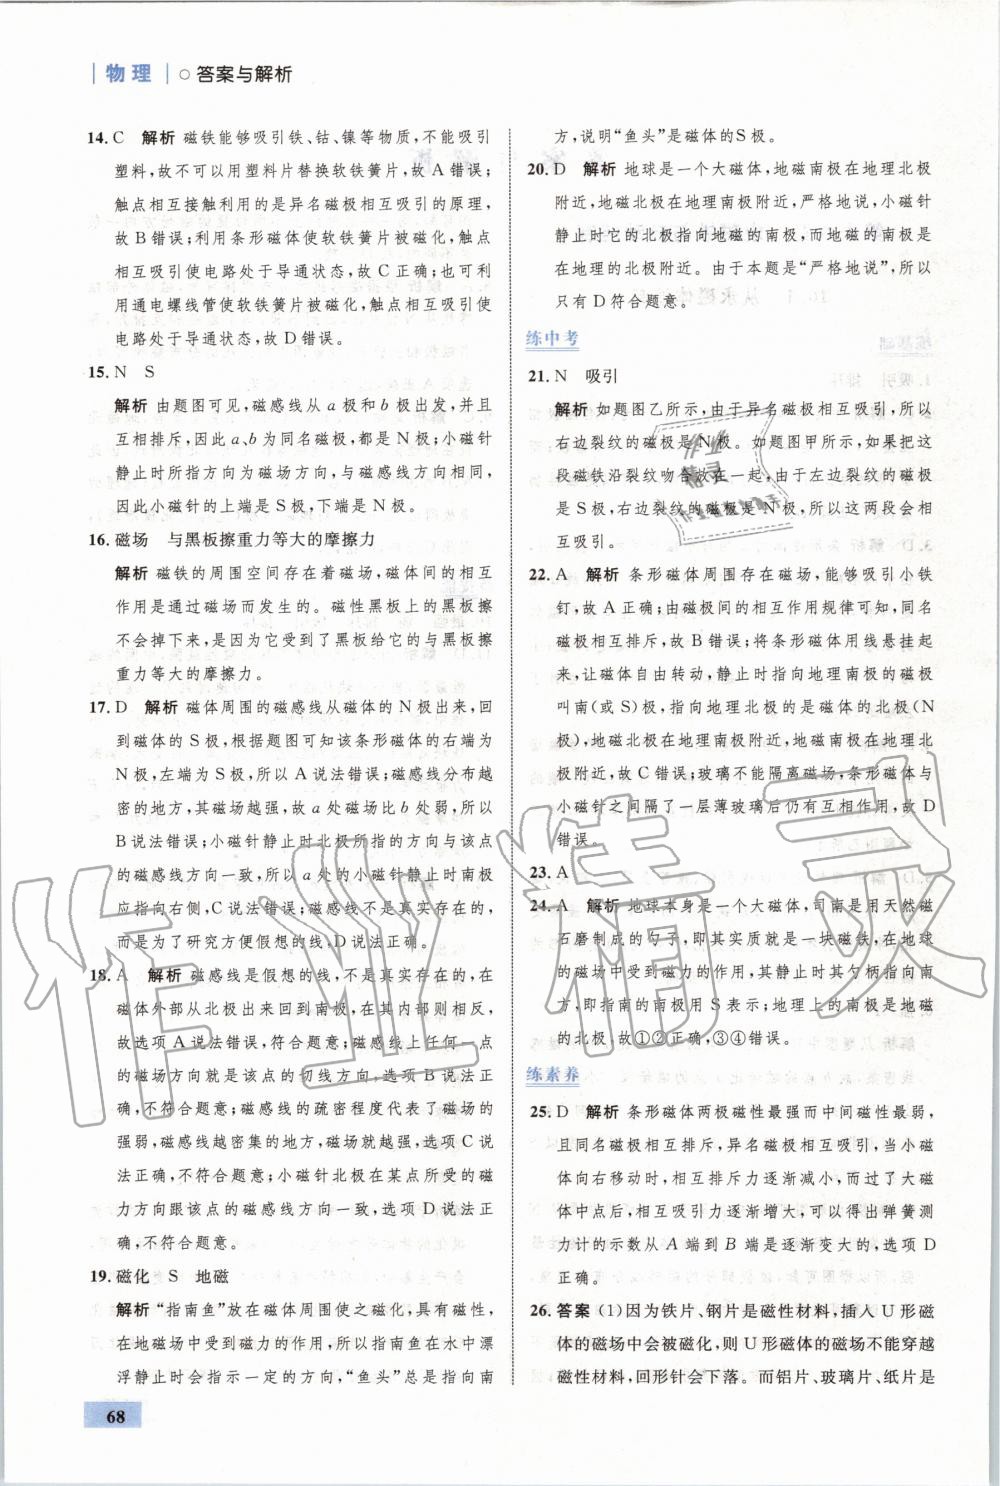 物理 ○ 答案与解析
14. C 解析 磁铁能够吸引铁、钴、镍等物质，不能吸引
塑料，故不可以用塑料片替换软铁簧片，故 A 错误；
触点相互接触利用的是异名磁极相互吸引的原理，
故 B 错误；利用条形磁体使软铁簧片被磁化，触点
相互吸引使电路处于导通状态，故 C 正确；也可利
用通电螺线管使软铁簧片被磁化，触点相互吸引使
电路处于导通状态，故 D 错误。
15. N S
解析 由题图可见，磁感线从 a 极和 b 极出发，并且
互相排斥，因此 a、b 为同名磁极，都是 N 极；小磁针
静止时所指方向为磁场方向，与磁感线方向相同，
因此小磁针的上端是 S 极，下端是 N 极。
16. 磁场 与黑板擦重力等大的摩擦力
解析 磁铁的周围空间存在着磁场，磁体间的相互
作用是通过磁场而发生的。磁性黑板上的黑板擦
不会掉下来，是因为它受到了黑板给它的与黑板擦
重力等大的摩擦力。
17. D 解析 磁体周围的磁感线从磁体的 N 极出来，回
到磁体的 S 极，根据题图可知该条形磁体的右端为
N 极，左端为 S 极，所以 A 说法错误；磁感线分布越
密的地方，其磁场越强，故 a 处磁场比 b 处弱，所以
B 说法错误；小磁针静止时北极所指的方向与该点
的磁感线方向一致，所以 a 处的小磁针静止时南极
应指向右侧，C 说法错误；磁感线不是真实存在的，
而是为了研究方便假想的线，D 说法正确。
18. A 解析 磁感线是假想的线，不是真实存在的，在
磁体外部从北极出来回到南极，在内部正好相反，
故选项 A 说法错误，符合题意；磁感线上任何一点
的方向就是该点的切线方向，故选项 B 说法正确，
不符合题意；磁感线的疏密程度代表了磁场的
强弱，磁感线越密集的地方，磁场就越强，选项 C 说
法正确，不符合题意；小磁针北极在某点所受的磁
力方向跟该点的磁感线方向一致，选项 D 说法正
确，不符合题意。
19. 磁化 S 地磁
解析 “指南鱼”放在磁体周围使之磁化，具有磁性，
在地磁场中受到磁力的作用，所以指南鱼在水中漂
浮静止时会指示一定的方向，“鱼头”总是指向南
68
方，说明“鱼头”是磁体的 S 极。
20. D 解析 地球是一个大磁体，地磁南极在地理北极
附近，地磁北极在地理南极附近，严格地说，小磁针
静止时它的北极指向地磁的南极，而地磁的南极是
在地理的北极附近。由于本题是“严格地说”，所以
只有 D 符合题意。
练中考
21. N 吸引
解析 如题图乙所示，由于异名磁极相互吸引，所以
右边裂纹的磁极是 N 极。如题图甲所示，如果将这
段磁铁沿裂纹吻合放在一起，由于左边裂纹的磁极
是 S 极，右边裂纹的磁极是 N 极，所以这两段会相
互吸引。
22. A 解析 条形磁体周围存在磁场，能够吸引小铁
钉，故 A 正确；由磁极间的相互作用规律可知，同名
磁极相互排斥，故 B 错误；将条形磁体用线悬挂起
来，让磁体自由转动，静止时指向地理南极的磁极
叫南（或 S）极，指向地理北极的是磁体的北极（N
极），地磁北极在地理南极附近，地磁南极在地理北
极附近，故 C 错误；玻璃不能隔离磁场，条形磁体与
小磁针之间隔了一层薄玻璃后仍有互相作用，故 D
错误。
23. A
24. A 解析 地球本身是一个大磁体，司南是用天然磁
石磨制成的勺子，即其实质就是一块磁铁，在地球
的磁场中受到磁力的作用，其静止时其勺柄指向南
方，即指南的南极用 S 表示；地理上的南极是地磁
的北极，故①②正确，③④错误。
练素养
25. D 解析 条形磁体两极磁性最强而中间磁性最弱，
且同名磁极相互排斥，异名磁极相互吸引，当小磁
体向右移动时，相互排斥力逐渐减小，而过了大磁
体中点后，相互吸引力逐渐增大，可以得出弹簧测
力计的示数从 A 端到 B 端是逐渐变大的，选项 D
正确。
26. 答案 （1）因为铁片、钢片是磁性材料，插入 U 形磁
体的磁场中会被磁化，则 U 形磁体的磁场不能穿越
磁性材料，回形针会下落。而铝片、玻璃片、纸片是
作业精灵